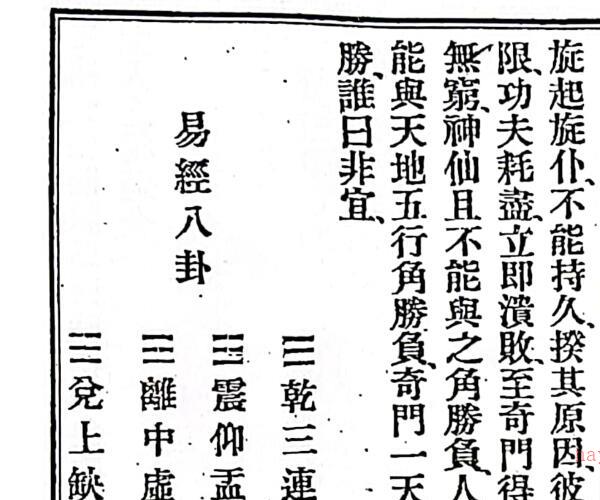 旋起旋仆、不能持久、揆其原因、彼
限、功夫耗盡、立即潰敗、至奇門得
無窮、神仙且不能與之角勝負、人
能與天地五行角勝負、奇門一天
勝、誰曰非宜、
易經八卦
☰乾三連
☳震仰盂
☲離中虛
☱兌上缺